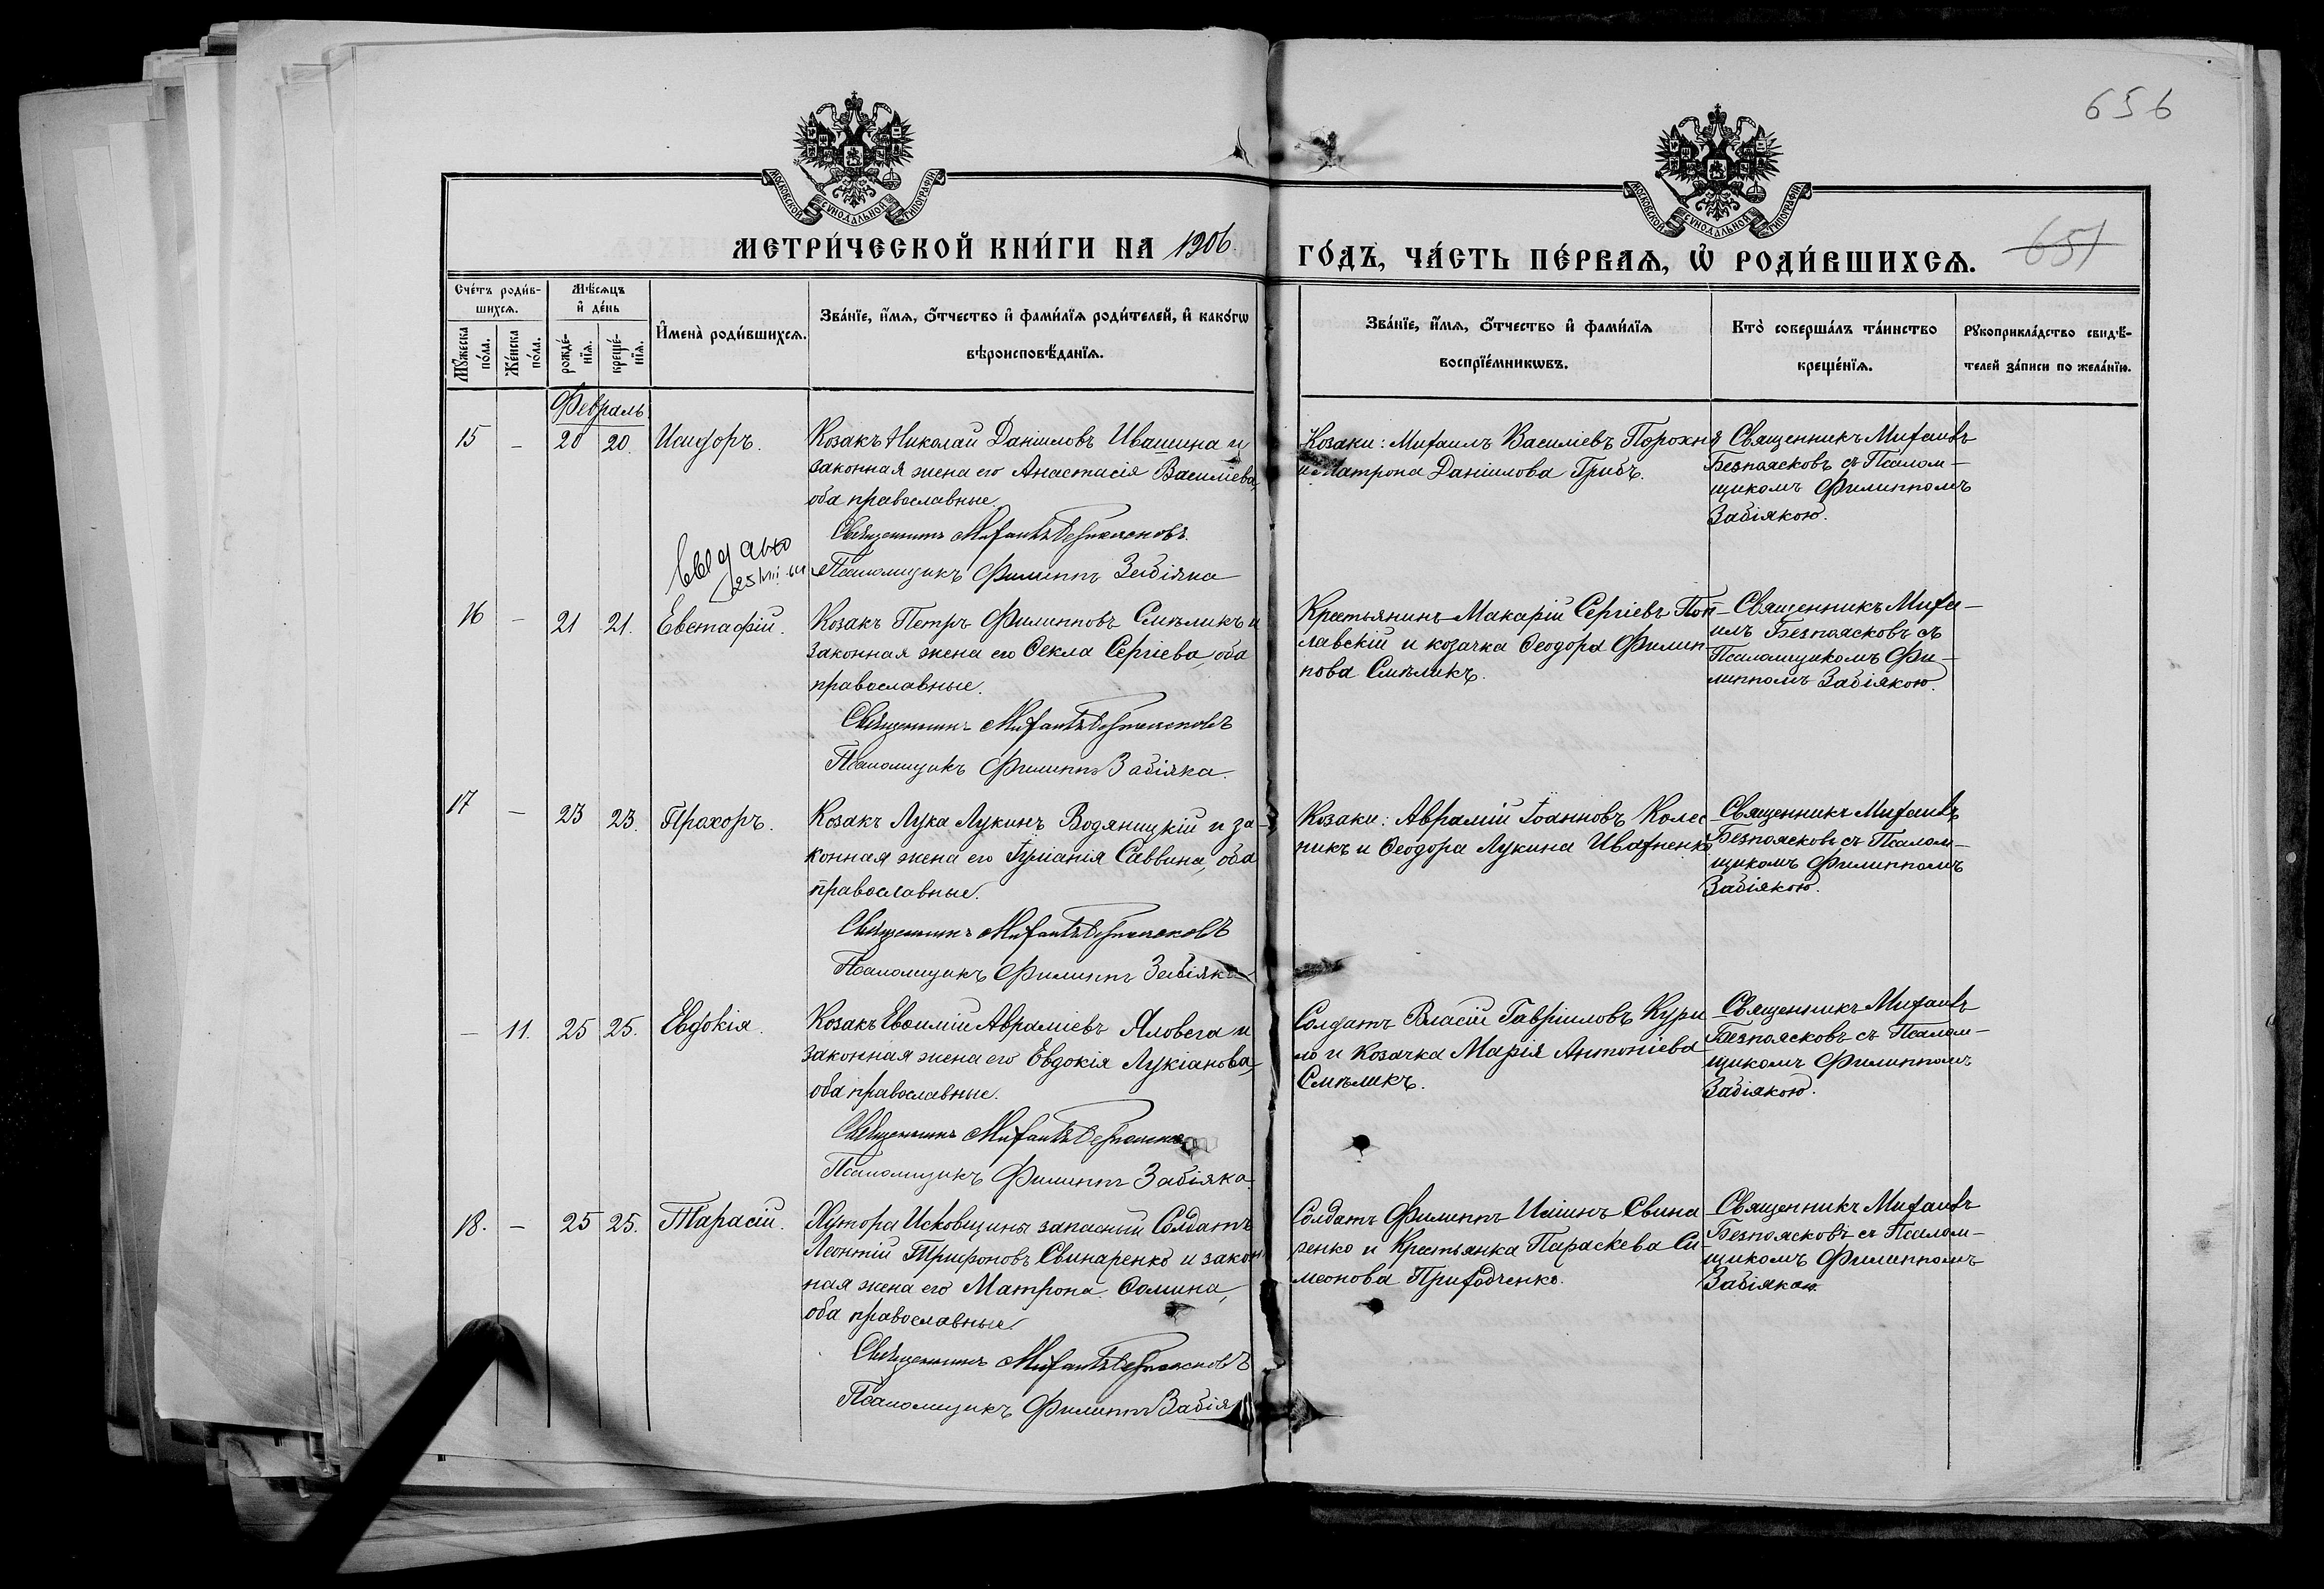 656
МОСКОВСКОЙ СѴНОДАЛЬНОЙ ТИПОГРАФІИ
МОСКОВСКОЙ СѴНОДАЛЬНОЙ ТИПОГРАФІИ
МЕТРИ́ЧЕСКОЙ КНИ́ГИ НА 1906.
ГО́ДЪ, ЧА́СТЬ ПЕ́РВАѦ, Ѡ҆ РОДИ́ВШИХСѦ.
651
Сче́тъ роди́в-
шихсѧ.
Мꙋ́жеска
по́ла.
Же́нска
по́ла.
Мѣ́сѧцъ
и҆ де́нь
рожде́-
нїѧ.
креще́-
нїѧ.
И҆мена̀ роди́вшихсѧ.
Зва́нїе, и҆́мѧ, ѻ҆́тчество и҆ фами́лїѧ роди́телей, и҆ како́гѡ
вѣроисповѣ́данїѧ.
Зва́нїе, и҆́мѧ, ѻ҆́тчество и҆ фами́лїѧ
воспрїе́мникѡвъ.
Кто̀ соверша́лъ та́инство
креще́нїѧ.
Рꙋкоприкла́дство свидѣ́-
телей за́писи по жела́нїю.
Февраль
15 – 20 20. Исидоръ.
Козакъ Николай Даніиловъ Ивашина и
законная жена его Анастасія Василіева,
оба православные.
Священникъ Михаилъ Безпоясковъ.
Псаломщикъ Филиппъ Забіяка
Козаки: Михаилъ Василіевъ Порохня
и Матрона Даніилова Грибъ.
Священникъ Михаилъ
Безпоясковъ съ Псалом-
щикомъ Филиппомъ
Забіякою.
16 – 21 21. Евстафій.
Козакъ Петръ Филипповъ Смѣликъ и
законная жена его Ѳекла Сергіева, оба
православные.
Священникъ Михаилъ Безпоясковъ
Псаломщикъ Филиппъ Забіяка.
Крестьянинъ Макарій Сергіевъ Поп-
лавскій и козачка Ѳеодора Филип-
пова Смѣликъ.
Священникъ Миха-
илъ Безпоясковъ съ
Псаломщикомъ Фи-
липпомъ Забіякою.
17 – 23 23. Прохоръ.
Козакъ Лука Лукинъ Водяницкій и за-
конная жена его Іуліанія Саввина, оба
православные.
Священникъ Михаилъ Безпоясковъ
Псаломщикъ Филиппъ Забіяка
Козаки: Аврамій Іоанновъ Колес
никъ и Ѳеодора Лукина Ивахненко
Священникъ Михаилъ
Безпоясковъ съ Псалом-
щикомъ Филиппомъ
Забіякою.
– 11. 25 25. Евдокія.
Козакъ Евѳимій Авраміевъ Яловега и
законная жена его Евдокія Лукіанова,
оба православные.
Священникъ Михаилъ Безпоясковъ
Псаломщикъ Филиппъ Забіяка.
Солдатъ Власій Гавріиловъ Кури
ло и Козачка Марія Антоніева
Смѣликъ.
Священникъ Михаилъ
Безпоясковъ съ Псалом-
щикомъ Филиппомъ
Забіякою.
18. – 25 25. Тарасій.
Хутора Исковщины запасный Солдатъ
Леонтій Трифоновъ Свинаренко и закон
ная жена его Матрона Ѳомина,
оба православные.
Священникъ Михаилъ Безпоясковъ
Псаломщикъ Филиппъ Забія
Солдатъ Филиппъ Иліинъ Свина
ренко и Крестьянка Параскева Си-
меонова Приходченко.
Священникъ Михаилъ
Безпоясковъ съ Псалом-
щикомъ Филиппомъ
Забіякою.